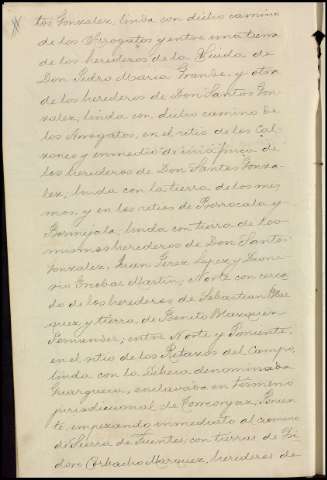 tos Gonzalez, linda con dicho camino
de los Arrogatos y entre una tierra
de los herederos de la Viuda de
Don Pedro Maria Grande, y otra
de los herederos de Don Santos Gon-
zalez, linda con dicho camino de
los Arrogatos, en el sitio de los Cal-
zones y enmedio de una finca de
los herederos de Don Santos Gonza-
lez, linda con la tierra de los mis-
mos, y en los sitios de Borrocala y
Bermejala, linda con tierra de los
mismos herederos de Don Santos
Gonzalez, Juan Perez Lopez y Leone-
sio Escobar Martin; Norte con cerca-
do de los herederos de Sebastian
y tierra de Benito Marquez
entre Norte y Poniente,
en el sitio de los del Campo,
linda con la denominada
enclavada en termino
jurisdiccional de Ponien-
te, empezando inmediato al camino
de Sierra de Fuentes, con tierras de
Marquez, herederos de